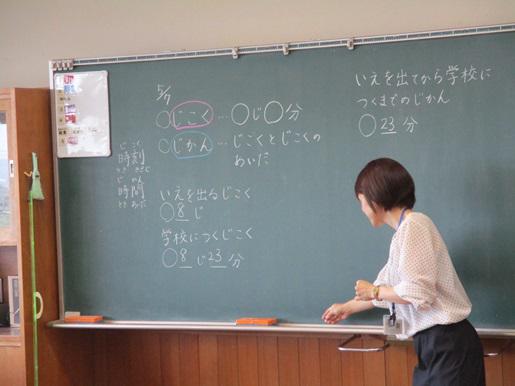 5/7
○じこく…○じ○分
○じかん…じこくとじこくの
あいだ
じこく
時刻
とき きざむ
じ かん
時間
とき あいだ
いえを出るじこく
○8じ
学校につくじこく
○8じ23分
いえを出てから学校に
つくまでのじかん
○23分